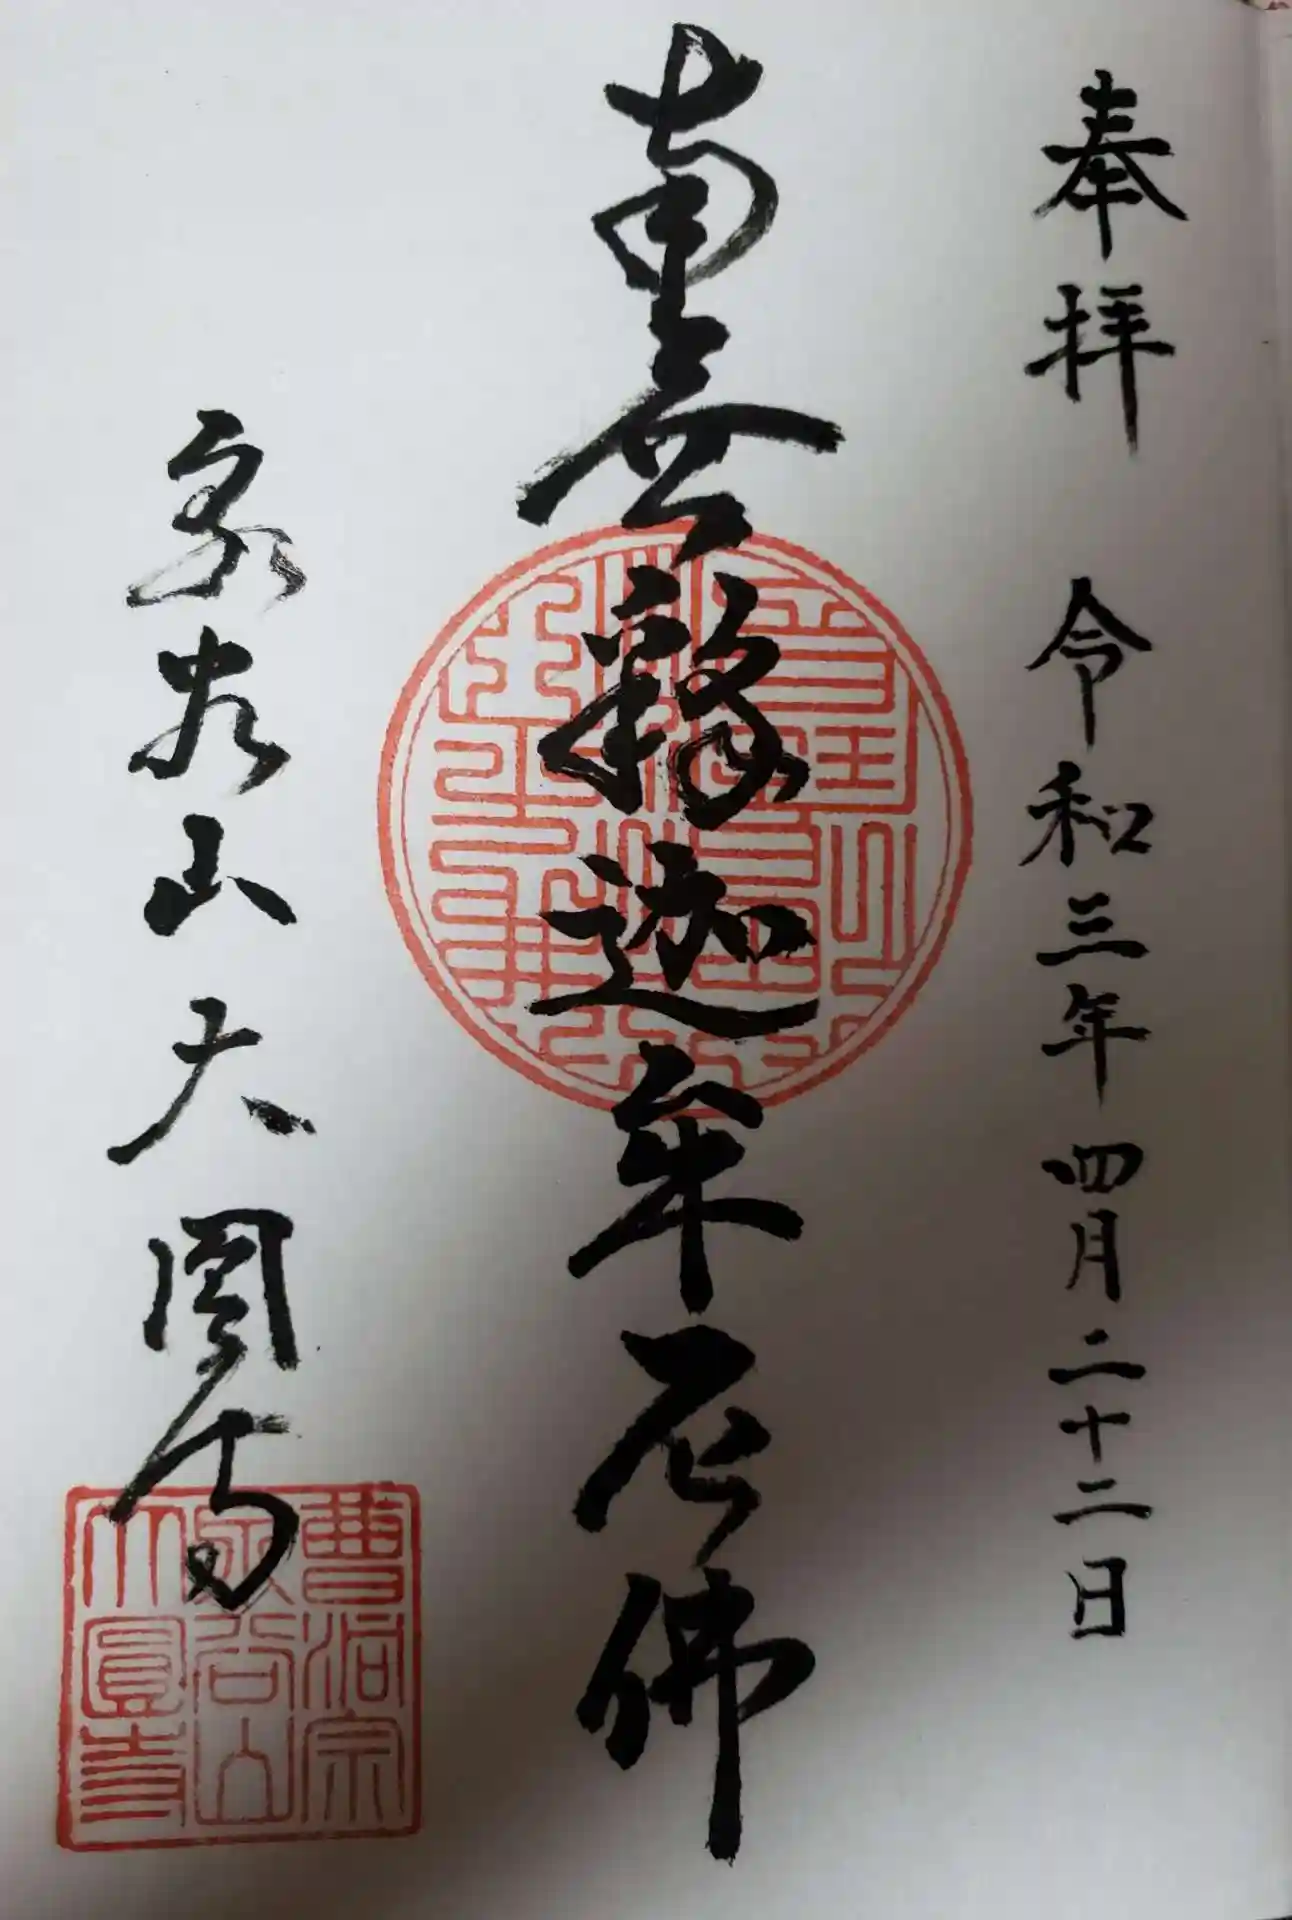 奉拝 令和三年四月二十二日
南無釋迦牟尼佛
泉谷山大圓寺
曹洞宗
泉谷山
大圓寺